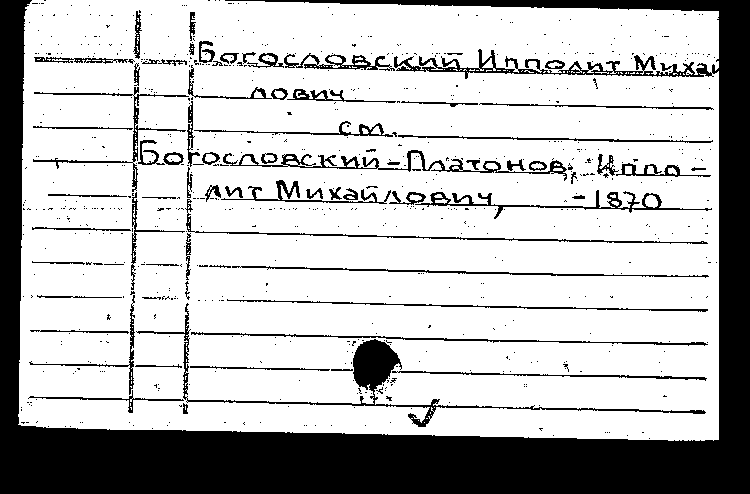 Богословский, Ипполит Михай
лович
см.
Богословский-Платонов, Иппо-
лит Михайлович, -1870